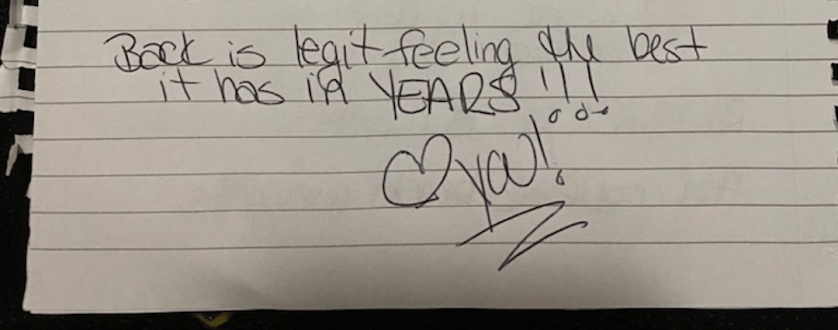 Back is legit feeling the best
it has in YEARS!!!
♡ ya!